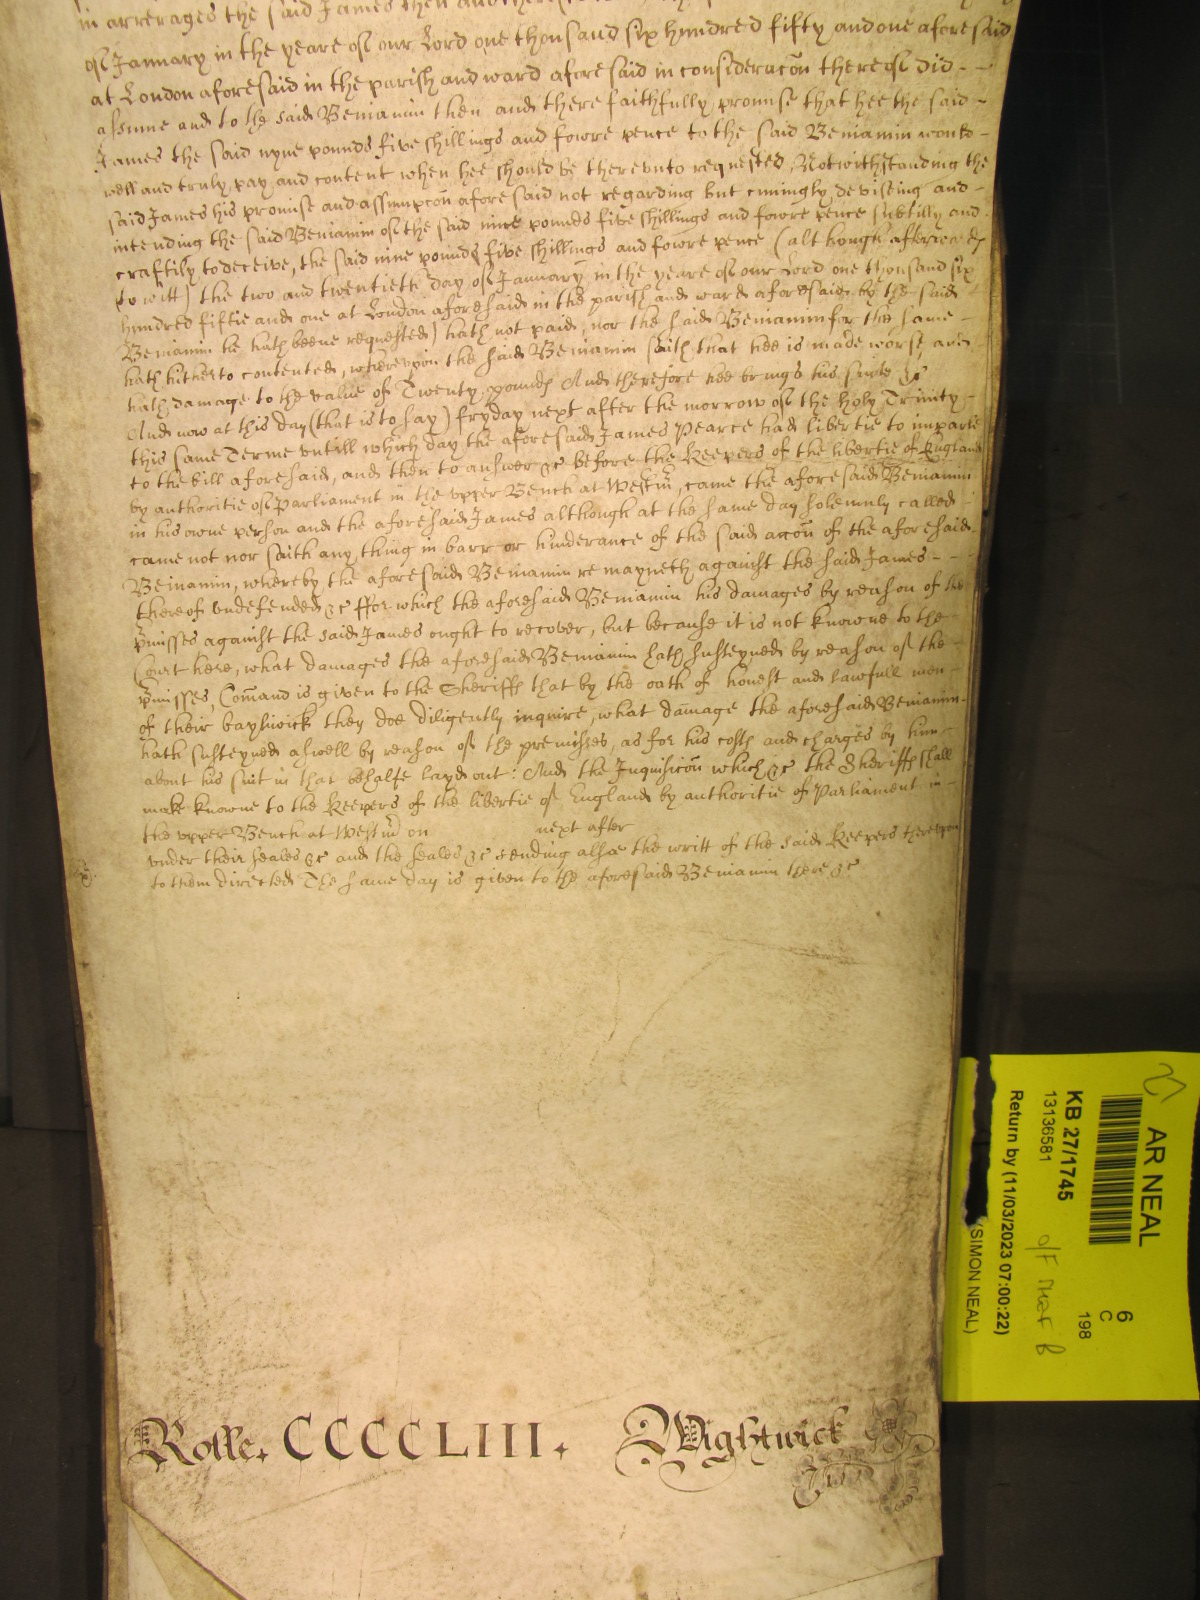 in arrerages the said James then and there
of January in the yeare of our Lord one thousand six hundred fifty and one aforesaid
at London aforesaid in the parish and ward aforesaid in consideracōn thereof did - -
assume and to the said Beniamin then and there faithfully promise that hee the said -
James the said nyne pounds five shillings and fowre pence to the said Beniamin would -
well and truly pay and content when hee should be therevnto requested, Notwithstanding the
said James his promise and assumpcōn aforesaid not regarding but cuningly deviseing and -
intending the said Beniamin of the said nine pounds five shillings and fowre pence subtilly and
craftily to deceive, the said nine pounds five shillings and fowre pence (although afterwards
to witt) the two and twentieth day of January in the yeare of our Lord one thousand six
hundred fiftie and one at London aforesaid in the parish and ward aforesaid by the said
Beniamin he hath beene requested) hath not paid, nor the said Beniamin for the same -
hath hitherto contented, wherevpon the said Beniamin saith that hee is made worse and
hath damage to the value of Twenty pounds And therefore hee brings his suite &c
And now at this day (that is to say) fryday next after the morrow of the holy Trinity -
this same Terme vntill which day the aforesaid James Pearce had libertie to imparle
to the bill aforesaid, and then to answer &c before the Keepers of the libertie of England
by authoritie of Parliament in the vpper Bench at Westm̄, came the aforesaid Beniamin
in his owne person and the aforesaid James although at the same day solemnly called -
came not nor saith any thing in barr or hinderance of the said accōn of the aforesaid
Beniamin, whereby the aforesaid Beniamin remayneth against the said James - - -
thereof vndefended &c ffor which the aforesaid Beniamin his damages by reason of the
p̄misses against the said James ought to recover, but because it is not knowne to the
Court here, what damages the aforesaid Beniamin hath susteyned by reason of the
p̄misses, Com̄and is given to the Sheriffs that by the oath of honest and lawfull men -
of their baylwick they doe diligently inquire, what damage the aforesaid Beniamin
hath susteyned aswell by reason of the premisses, as for his costs and charges by him
about his suit in that behalfe layd out: And the Inquisicōn which &c the Sheriffs shall
make knowne to the Keepers of the libertie of England by authoritie of Parliament in -
the vpper Bench at Westm̄ on next after
vnder their seales &c and the seales &c sending alsoe the writt of the said Keepers therevpon
to them directed The same day is given to the aforesaid Beniamin there &c
Rolle. CCCCLIII.
Wightwick
AR NEAL
6
C
198
KB 27/1745
13136581
Return by (11/03/2023 07:00:22)
(SIMON NEAL)